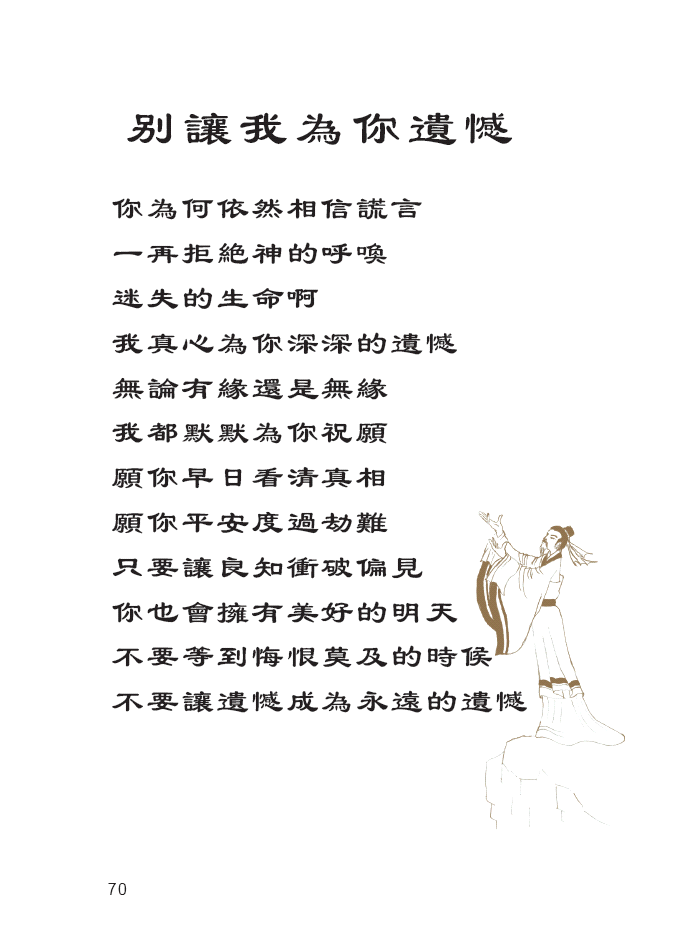 別讓我為你遺憾
你為何依然相信謊言
一再拒絕神的呼喚
迷失的生命啊
我真心為你深深的遺憾
無論有緣還是無緣
我都默默為你祝願
願你早日看清真相
願你平安度過劫難
只要讓良知衝破偏見
你也會擁有美好的明天
不要等到悔恨莫及的時候
不要讓遺憾成為永遠的遺憾
70